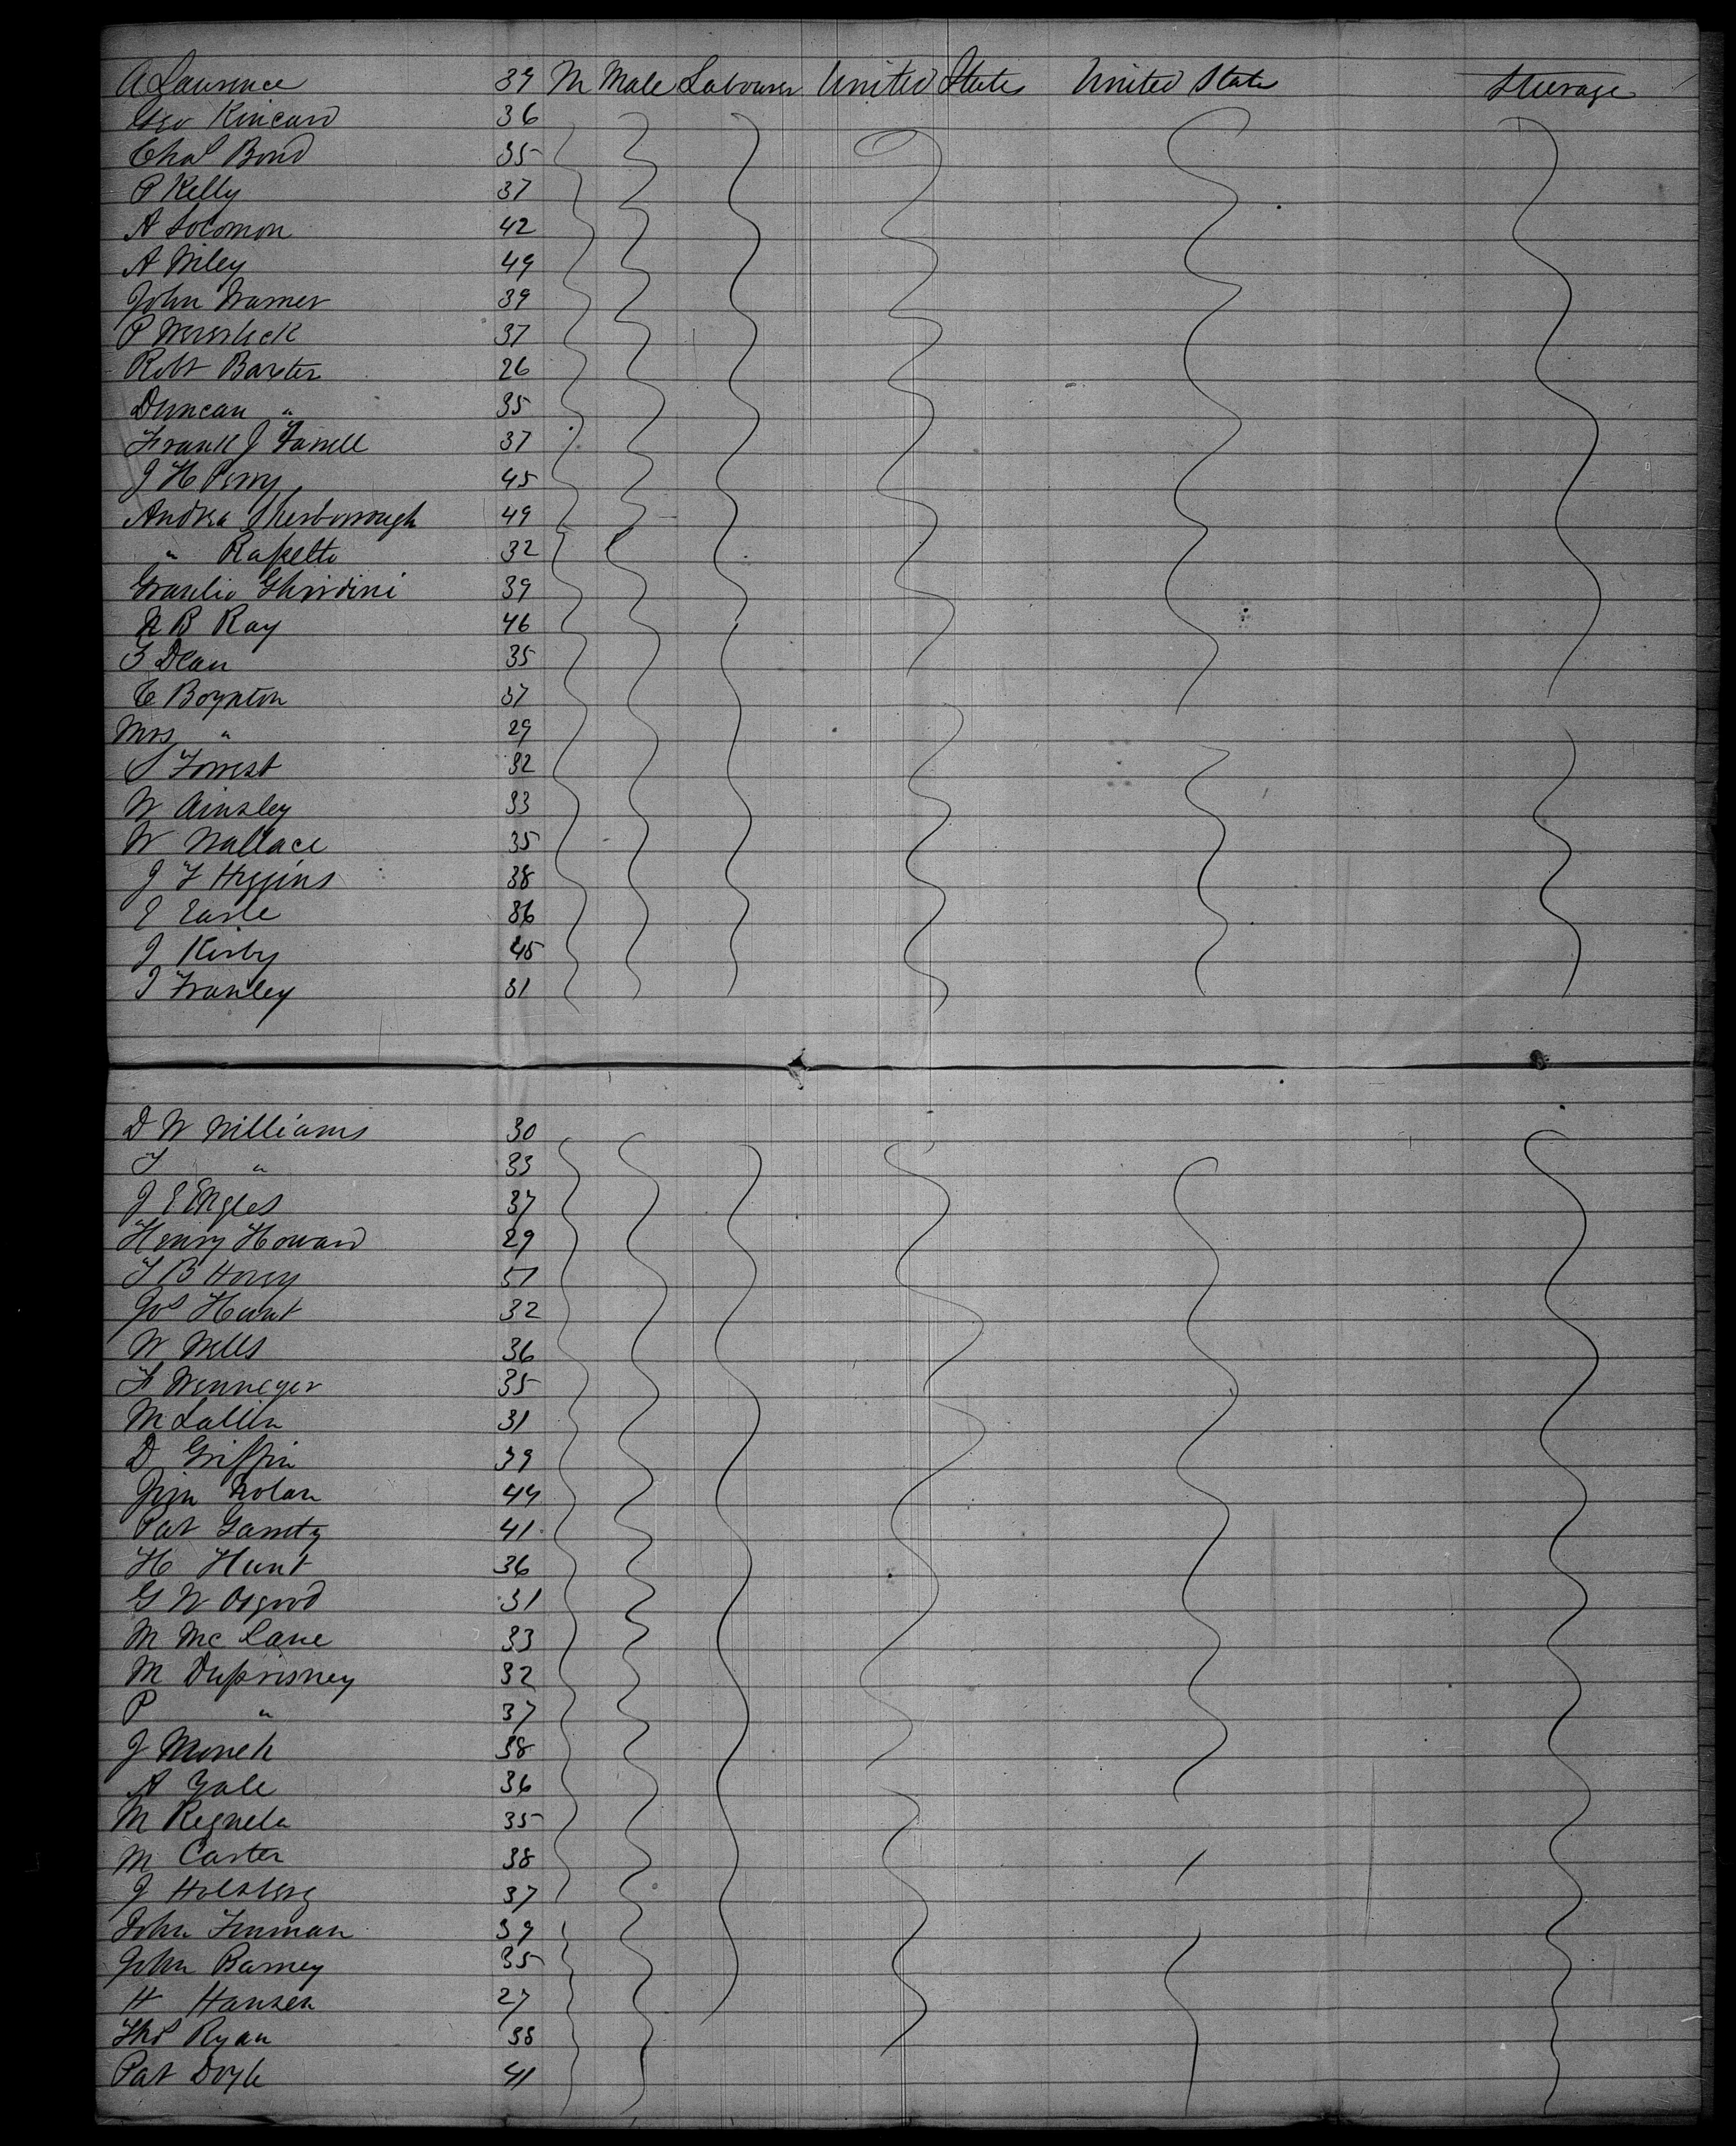 A Lawrence 39 M Male Labourer United States United State Steerage
Geo Kincard 36
Chas Bond 35
P Kelly 37
A Solomon 42
A Wiley 49
John Warner 39
P 37
Robt Baxter 26
Duncan " 35
Frank J Farrell 37
J H Perry 45
Andrea 49
" Raffetto 32
39
B Ray 46
Dean 35
C Boynton 37
Mrs " 29
S Forrest 32
W Ainsley 33
W Wallace 35
J F Higgins 38
J Earle 36
J Kirby 45
J Franley 31
D W Williams 30
T " 33
J E Engles 37
Henry Howard 29
T B Hovey 51
Jos Hunt 32
W Wells 36
F Wenneger 35
M Lallin 31
D Griffin 39
Jim Nolan 44
Pat Garrity 41
H Hunt 36
G W Osgood 31
M Mc Cane 33
M 32
P " 37
J Monch 38
A Yale 36
M Regnela 35
M Carter 38
J Holsberg 37
John 39
John Barney 35
H Hansen 27
Thos Ryan 38
Pat Doyle 41